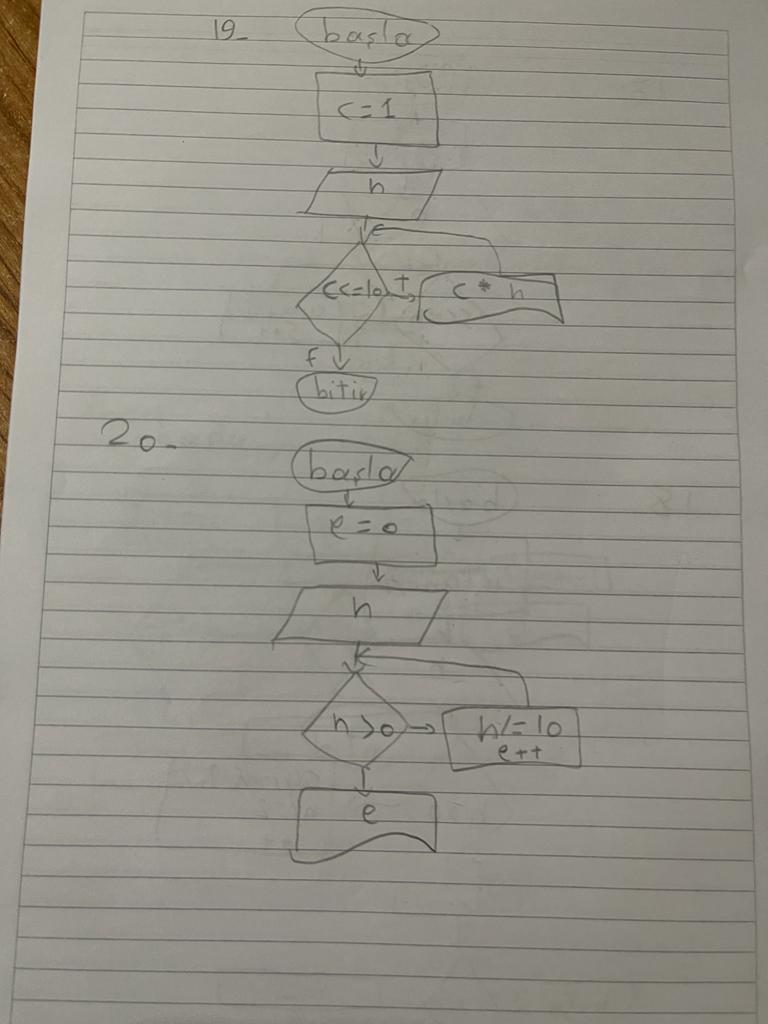 19_ başla
c=1
n
c<=10 T c * n
F
bitir
20-
başla
e=0
n
n>0 n/=10
e++
e